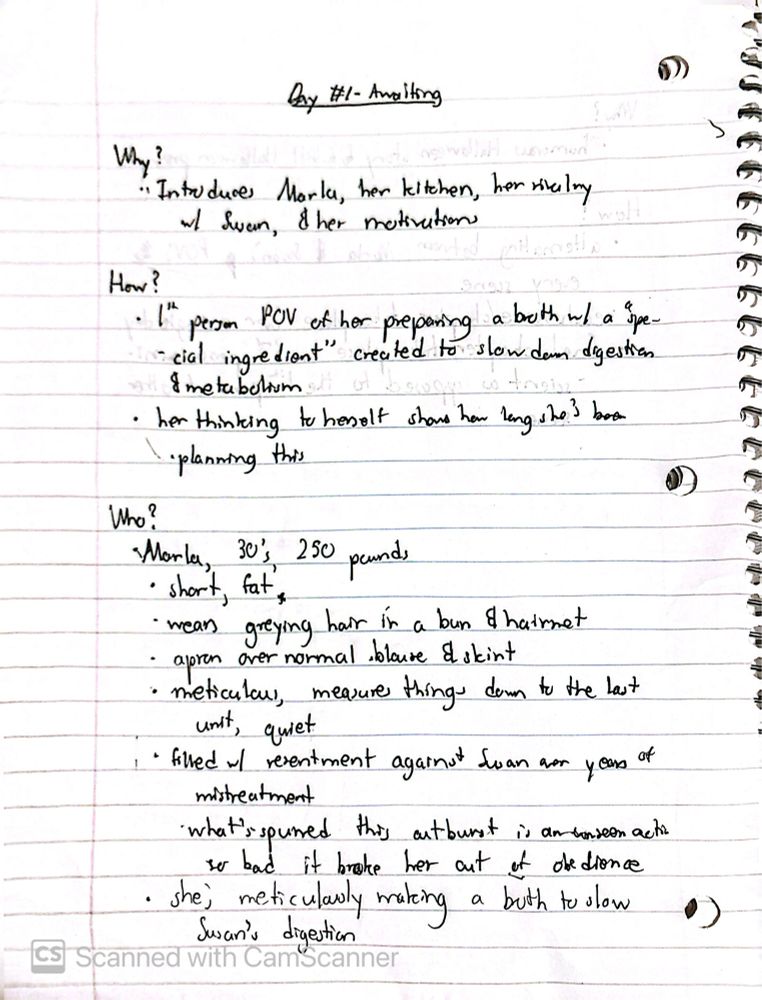 Day #1 - Awaiting
Why?
Introduces Marla, her kitchen, her rivalry
w/ Swan, & her motivations
How?
• 1st person POV of her preparing a broth w/ a "spe-
-cial ingredient" created to slow down digestion
& metabolism
• her thinking to herself shows how long she's been
• planning this
Who?
• Marla, 30's, 250 pounds
• short, fat
• wears greying hair in a bun & hairnet
• apron over normal blouse & skirt
• meticulous, measures things down to the last
unit, quiet
• filled w/ resentment against Swan over years of
mistreatment
• what's spurred this outburst is an unseen action
so bad it broke her out of obedience
• she's meticulously making a broth to slow
Swan's digestion
CS Scanned with CamScanner